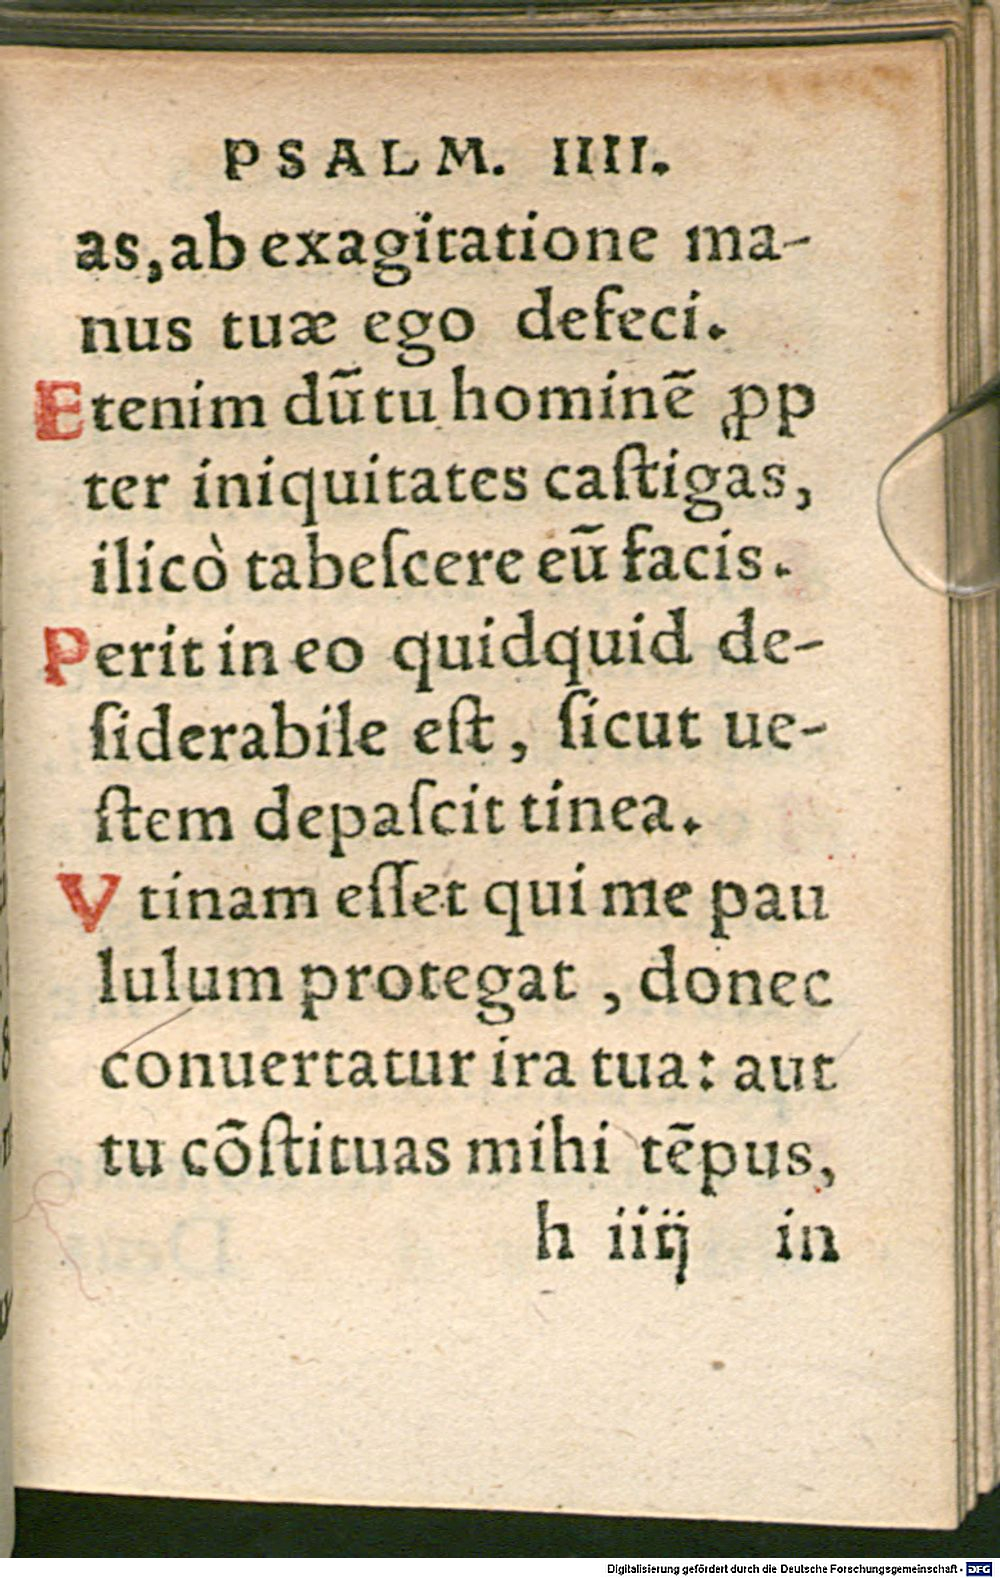 PSALM. IIII.
as, ab exagitatione ma-
nus tuæ ego defeci.
Etenim dū tu hominē ꝓp
ter iniquitates caſtigas,
ilicò tabeſcere eū facis.
Perit in eo quidquid de-
ſiderabile eſt, ſicut ue-
ſtem depaſcit tinea.
Vtinam eſſet qui me pau
lulum protegat, donec
conuertatur ira tua: aut
tu cōſtituas mihi tēpus,
h iiij in
Digitalisierung gefördert durch die Deutsche Forschungsgemeinschaft - DFG